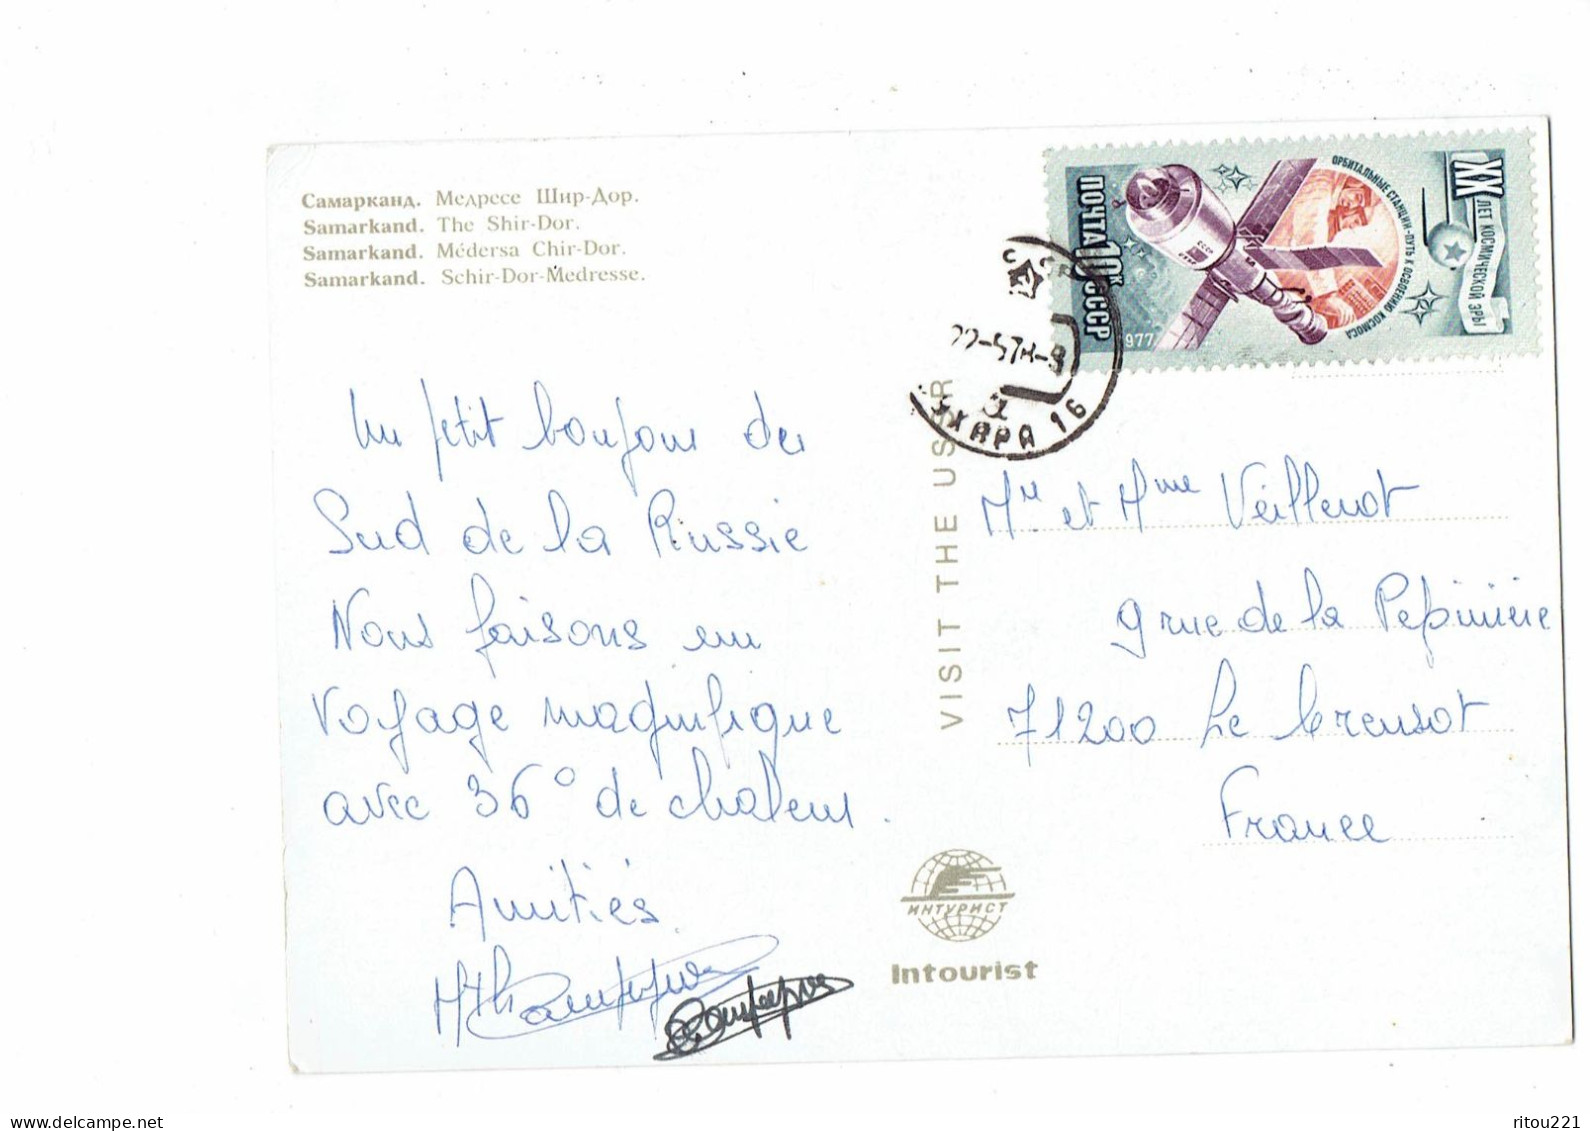 Самарканд. Медресе Шир-Дор.
Samarkand. The Shir-Dor.
Samarkand. Médersa Chir-Dor.
Samarkand. Schir-Dor-Medresse.
Un petit bonjour du
Sud de la Russie
Nous faisons un
voyage magnifique
avec 36° de chaleur.
Amitiés
VISIT THE USSR
ИНТУРИСТ
Intourist
XX ЛЕТ КОСМИЧЕСКОЙ ЭРЫ
ОРБИТАЛЬНЫЕ СТАНЦИИ-ПУТЬ К ОСВОЕНИЮ КОСМОСА
ПОЧТА 10К СССР
СССР
1977
БУХАРА 16
Mr. et Mme Veillenot
9 rue de la Pepinière
71200 Le Creusot
France
ritou221